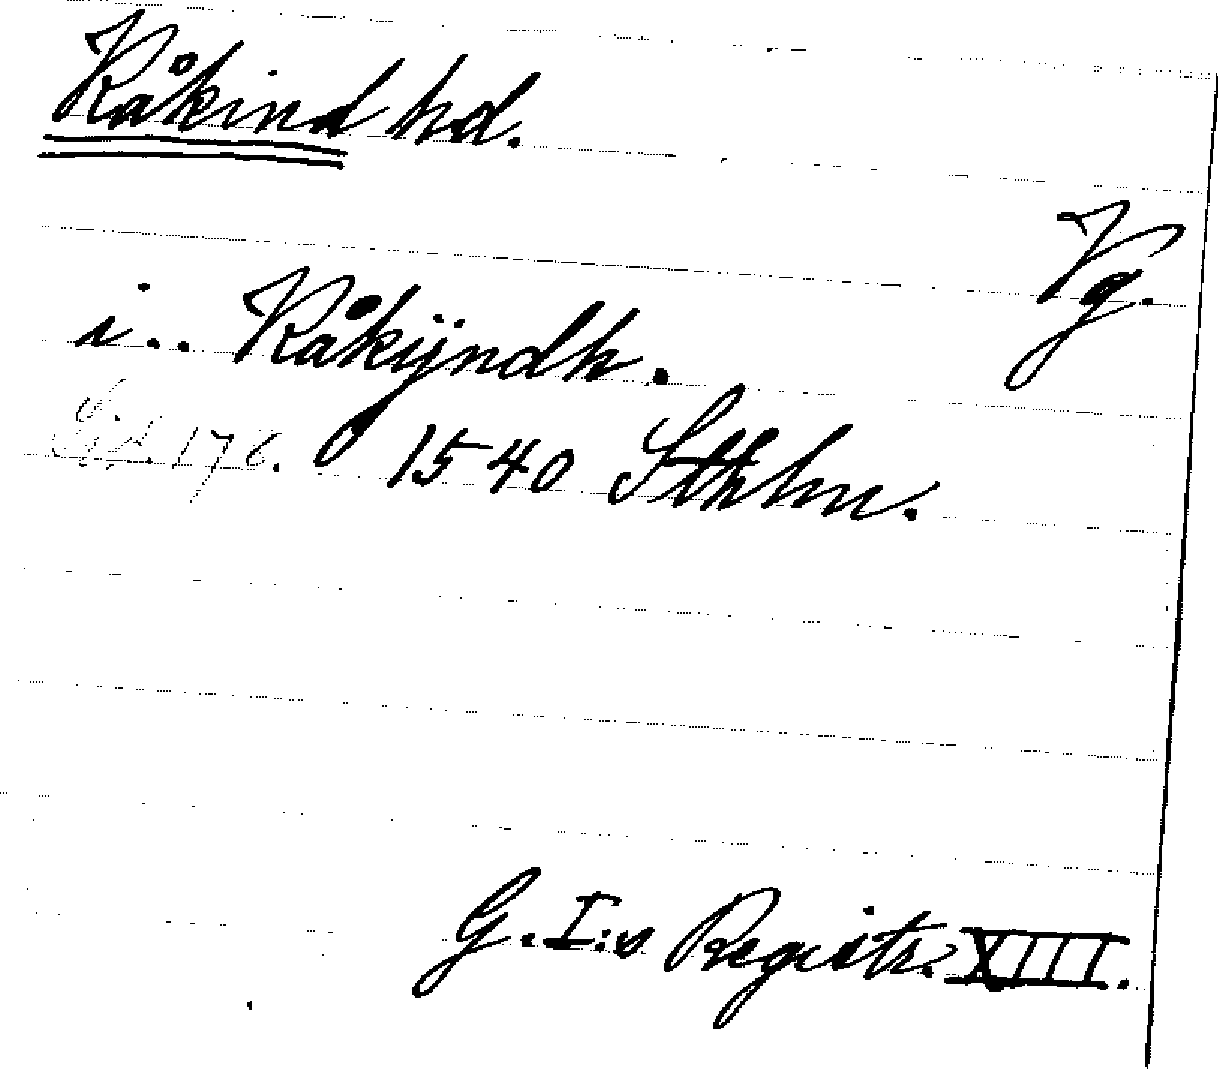 Kåkind hd.
Vg.
i.. Kåkijndh.
176. 1540 Sthlm.
G.I:s Registr. XIII.